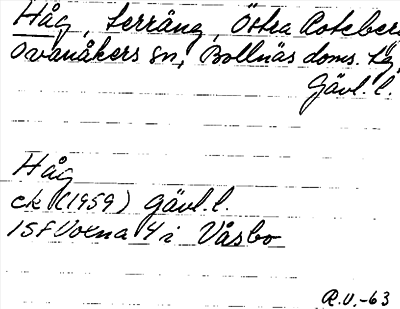 Håg, terräng, Östra Roteberg
Ovanåkers sn, Bollnäs doms. tg,
Gävl. l.
Håg
ck (1959) Gävl. l.
15F Voxna 4 i Våsbo
R.V.-63